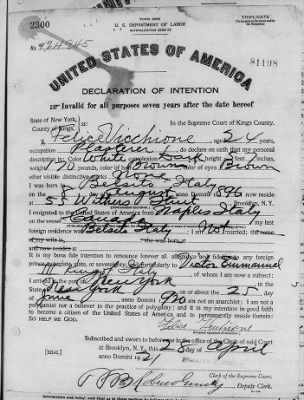 2300
U. S. DEPARTMENT OF LABOR
TRIPLICATE
No. 124345
UNITED STATES OF AMERICA
81198
DECLARATION OF INTENTION
Invalid for all purposes seven years after the date hereof
State of New York,
County of Kings,
In the Supreme Court of Kings County.
I, Felice Vicchione, aged 24 years,
occupation Plasterer, do declare on oath that my personal
description is: Color White, complexion Dark, height 5 feet inches,
weight 170 pounds, color of hair Brown, color of eyes Brown
other visible distinctive marks None
I was born in Belsito Italy
on the day of August, anno Domini 1896; I now reside
at 55 Withers Street, Brooklyn, N. Y.
I emigrated to the United States of America from Naples Italy
my last
foreign residence was Belsito Italy; I am Not married; the name
of my wife is she was born at
and now resides at
It is my bona fide intention to renounce forever all allegiance and fidelity to any foreign
prince, potentate, state, or sovereignty, and particularly to Victor Emmanuel
III King of Italy, of whom I am now a subject;
I arrived at the port of New York, in the
State of New York, on or about the 25 day
of June, anno Domini 1920; I am not an anarchist; I am not a
polygamist nor a believer in the practice of polygamy; and it is my intention in good faith
to become a citizen of the United States of America and to permanently reside therein:
SO HELP ME GOD.
Subscribed and sworn to before me in the office of the Clerk of said Court
at Brooklyn, N. Y., this 28 day of April
anno Domini 1921
[SEAL]
Clerk of the Supreme Court.
Deputy Clerk.